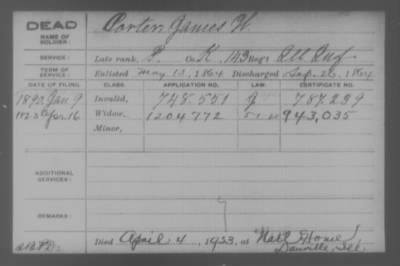 DEAD Porter, James H.
NAME OF SOLDIER:
SERVICE: Late rank, P. Co. K, 143 Reg't Ill Inf
TERM OF SERVICE: Enlisted May 13, 1864 Discharged Sep. 26, 1864
DATE OF FILING. CLASS. APPLICATION NO. LAW. CERTIFICATE NO.
1890 Jan 9 Invalid, 748.551 787239
Apr. 16 Widow, 1204772 943,035
Minor,
ADDITIONAL SERVICES:
REMARKS:
Died April 4, 1923, at Natl Home
Danville, Ill.